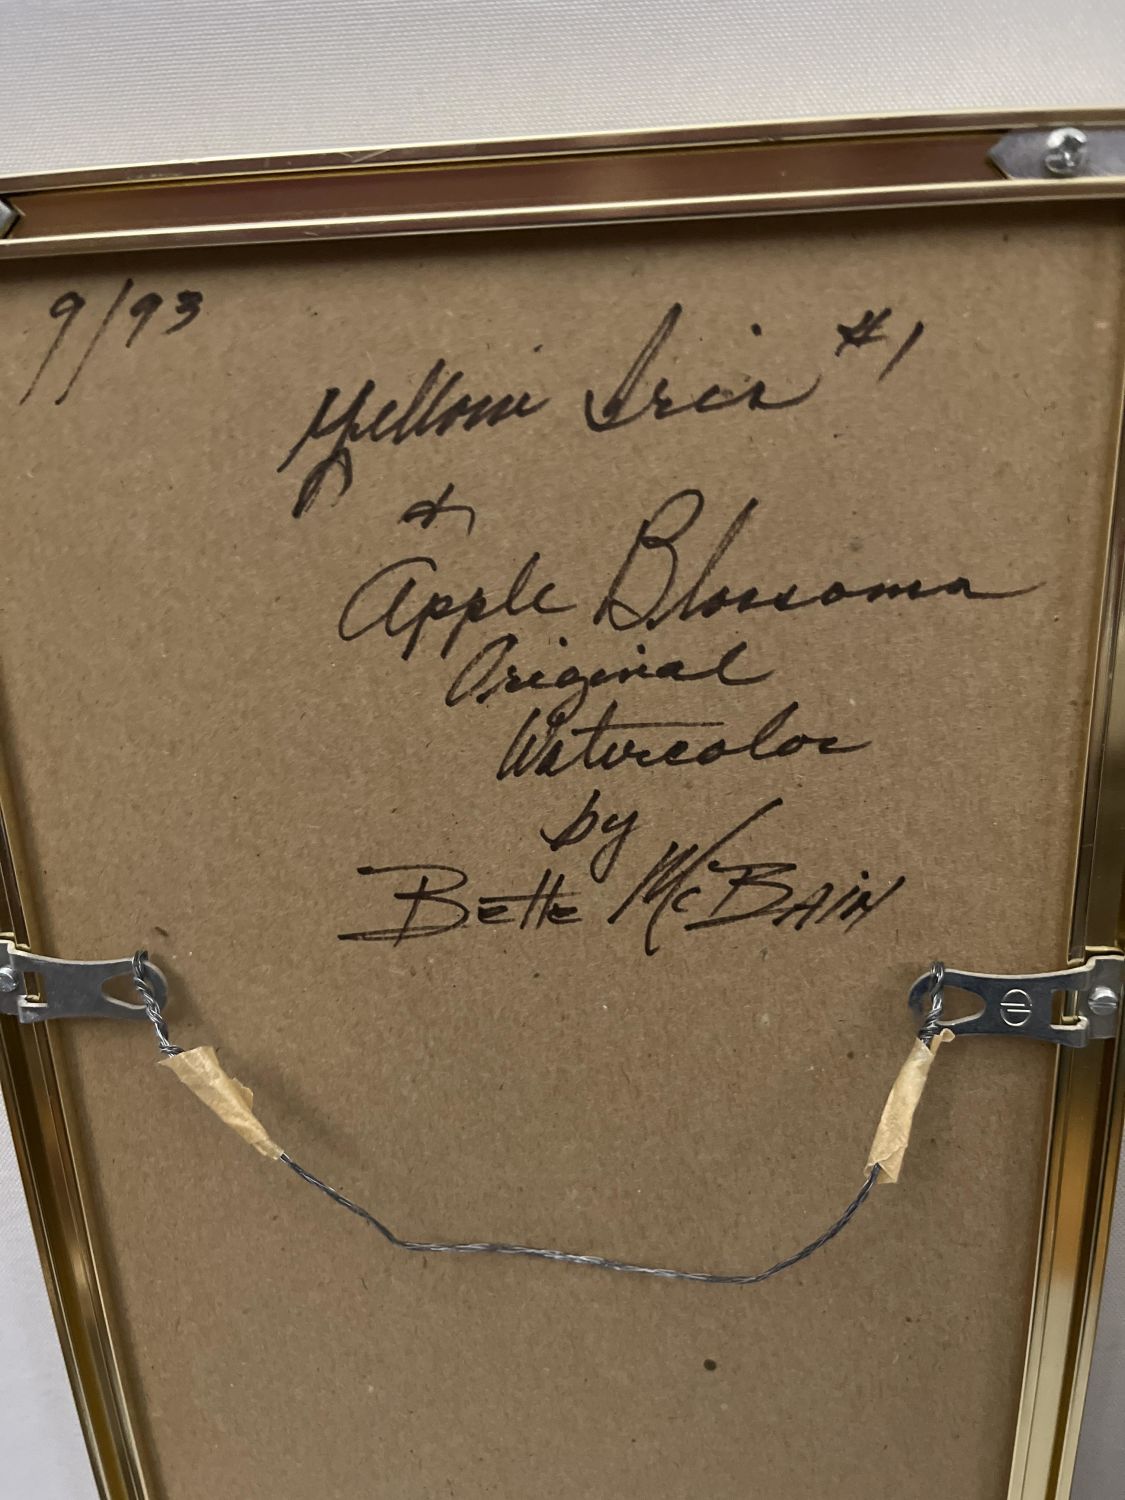 9/93
Yellow Iris #1
&
Apple Blossoms
Original
Watercolor
by
Bette McBain